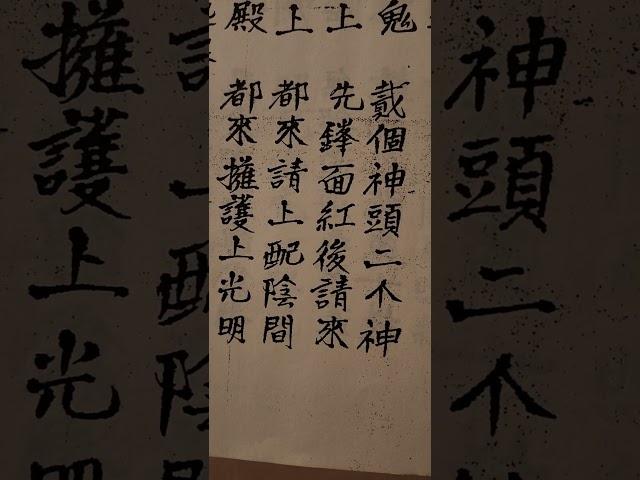 鬼
戴個神頭二个神
上
先鋒面紅後請來
上
都來請上配陰間
殿
都來擁護上光明